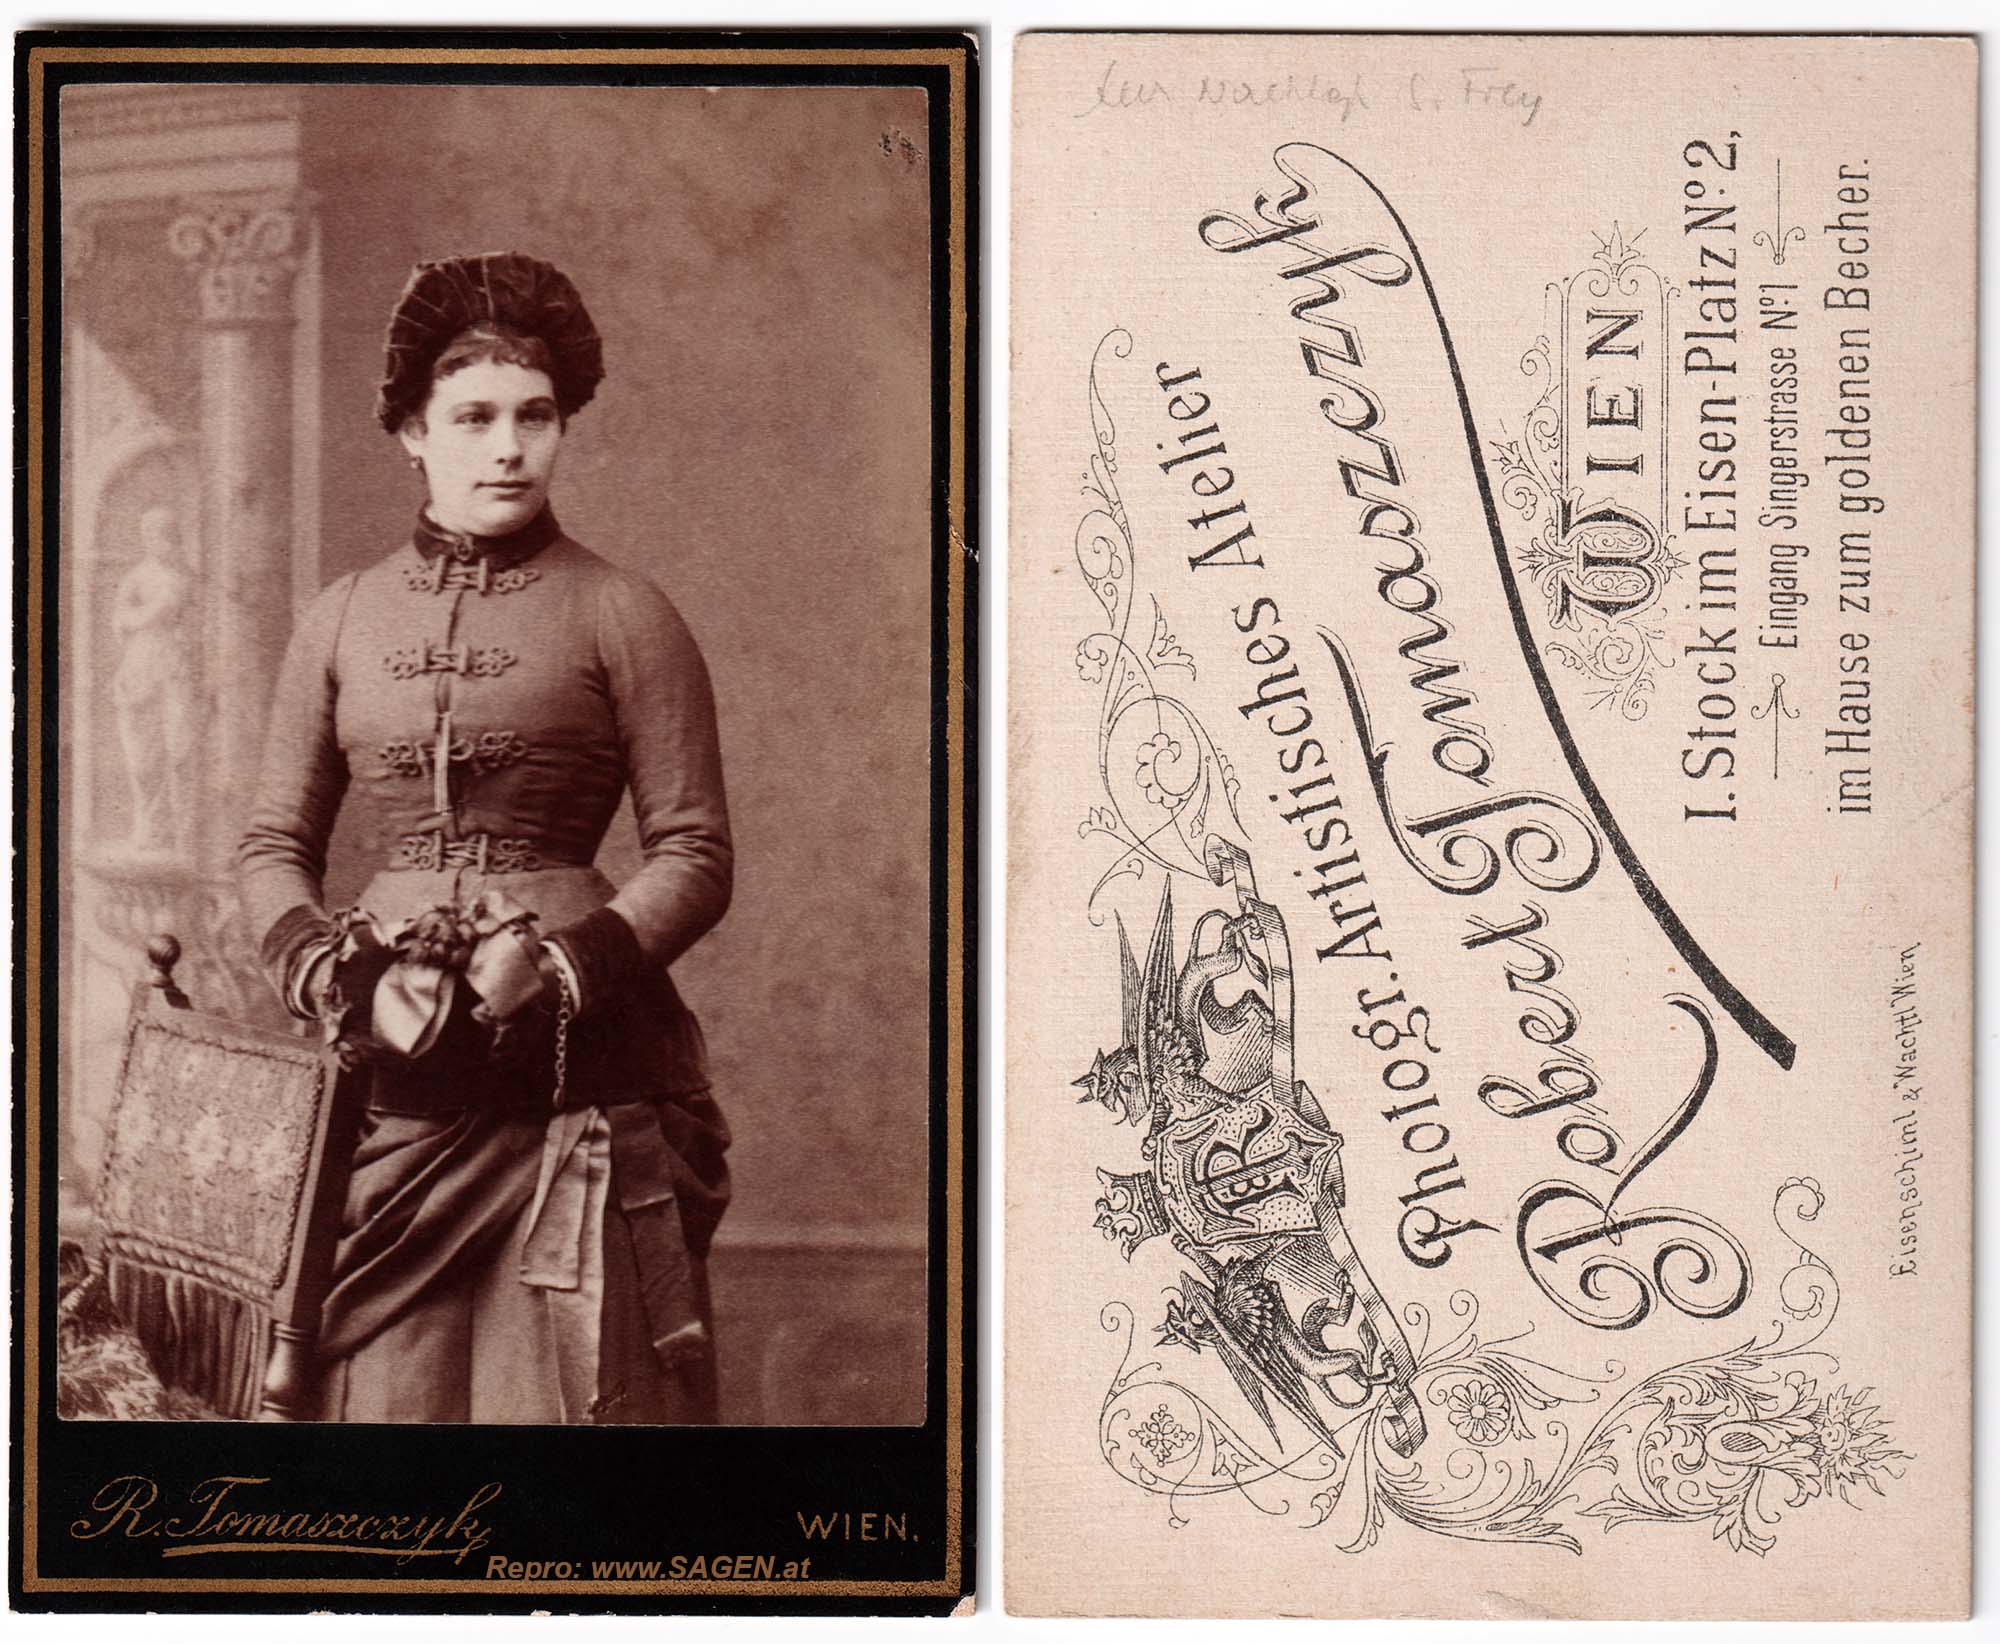 R. Tomaszczyk
WIEN.
Repro: www.SAGEN.at
S. Frey
Photogr. Artistisches Atelier
Robert Tomaszczyk
WIEN
I. Stock im Eisen-Platz No. 2,
Eingang Singerstrasse No. 1
im Hause zum goldenen Becher.
Eisenschiml & Wachtl Wien